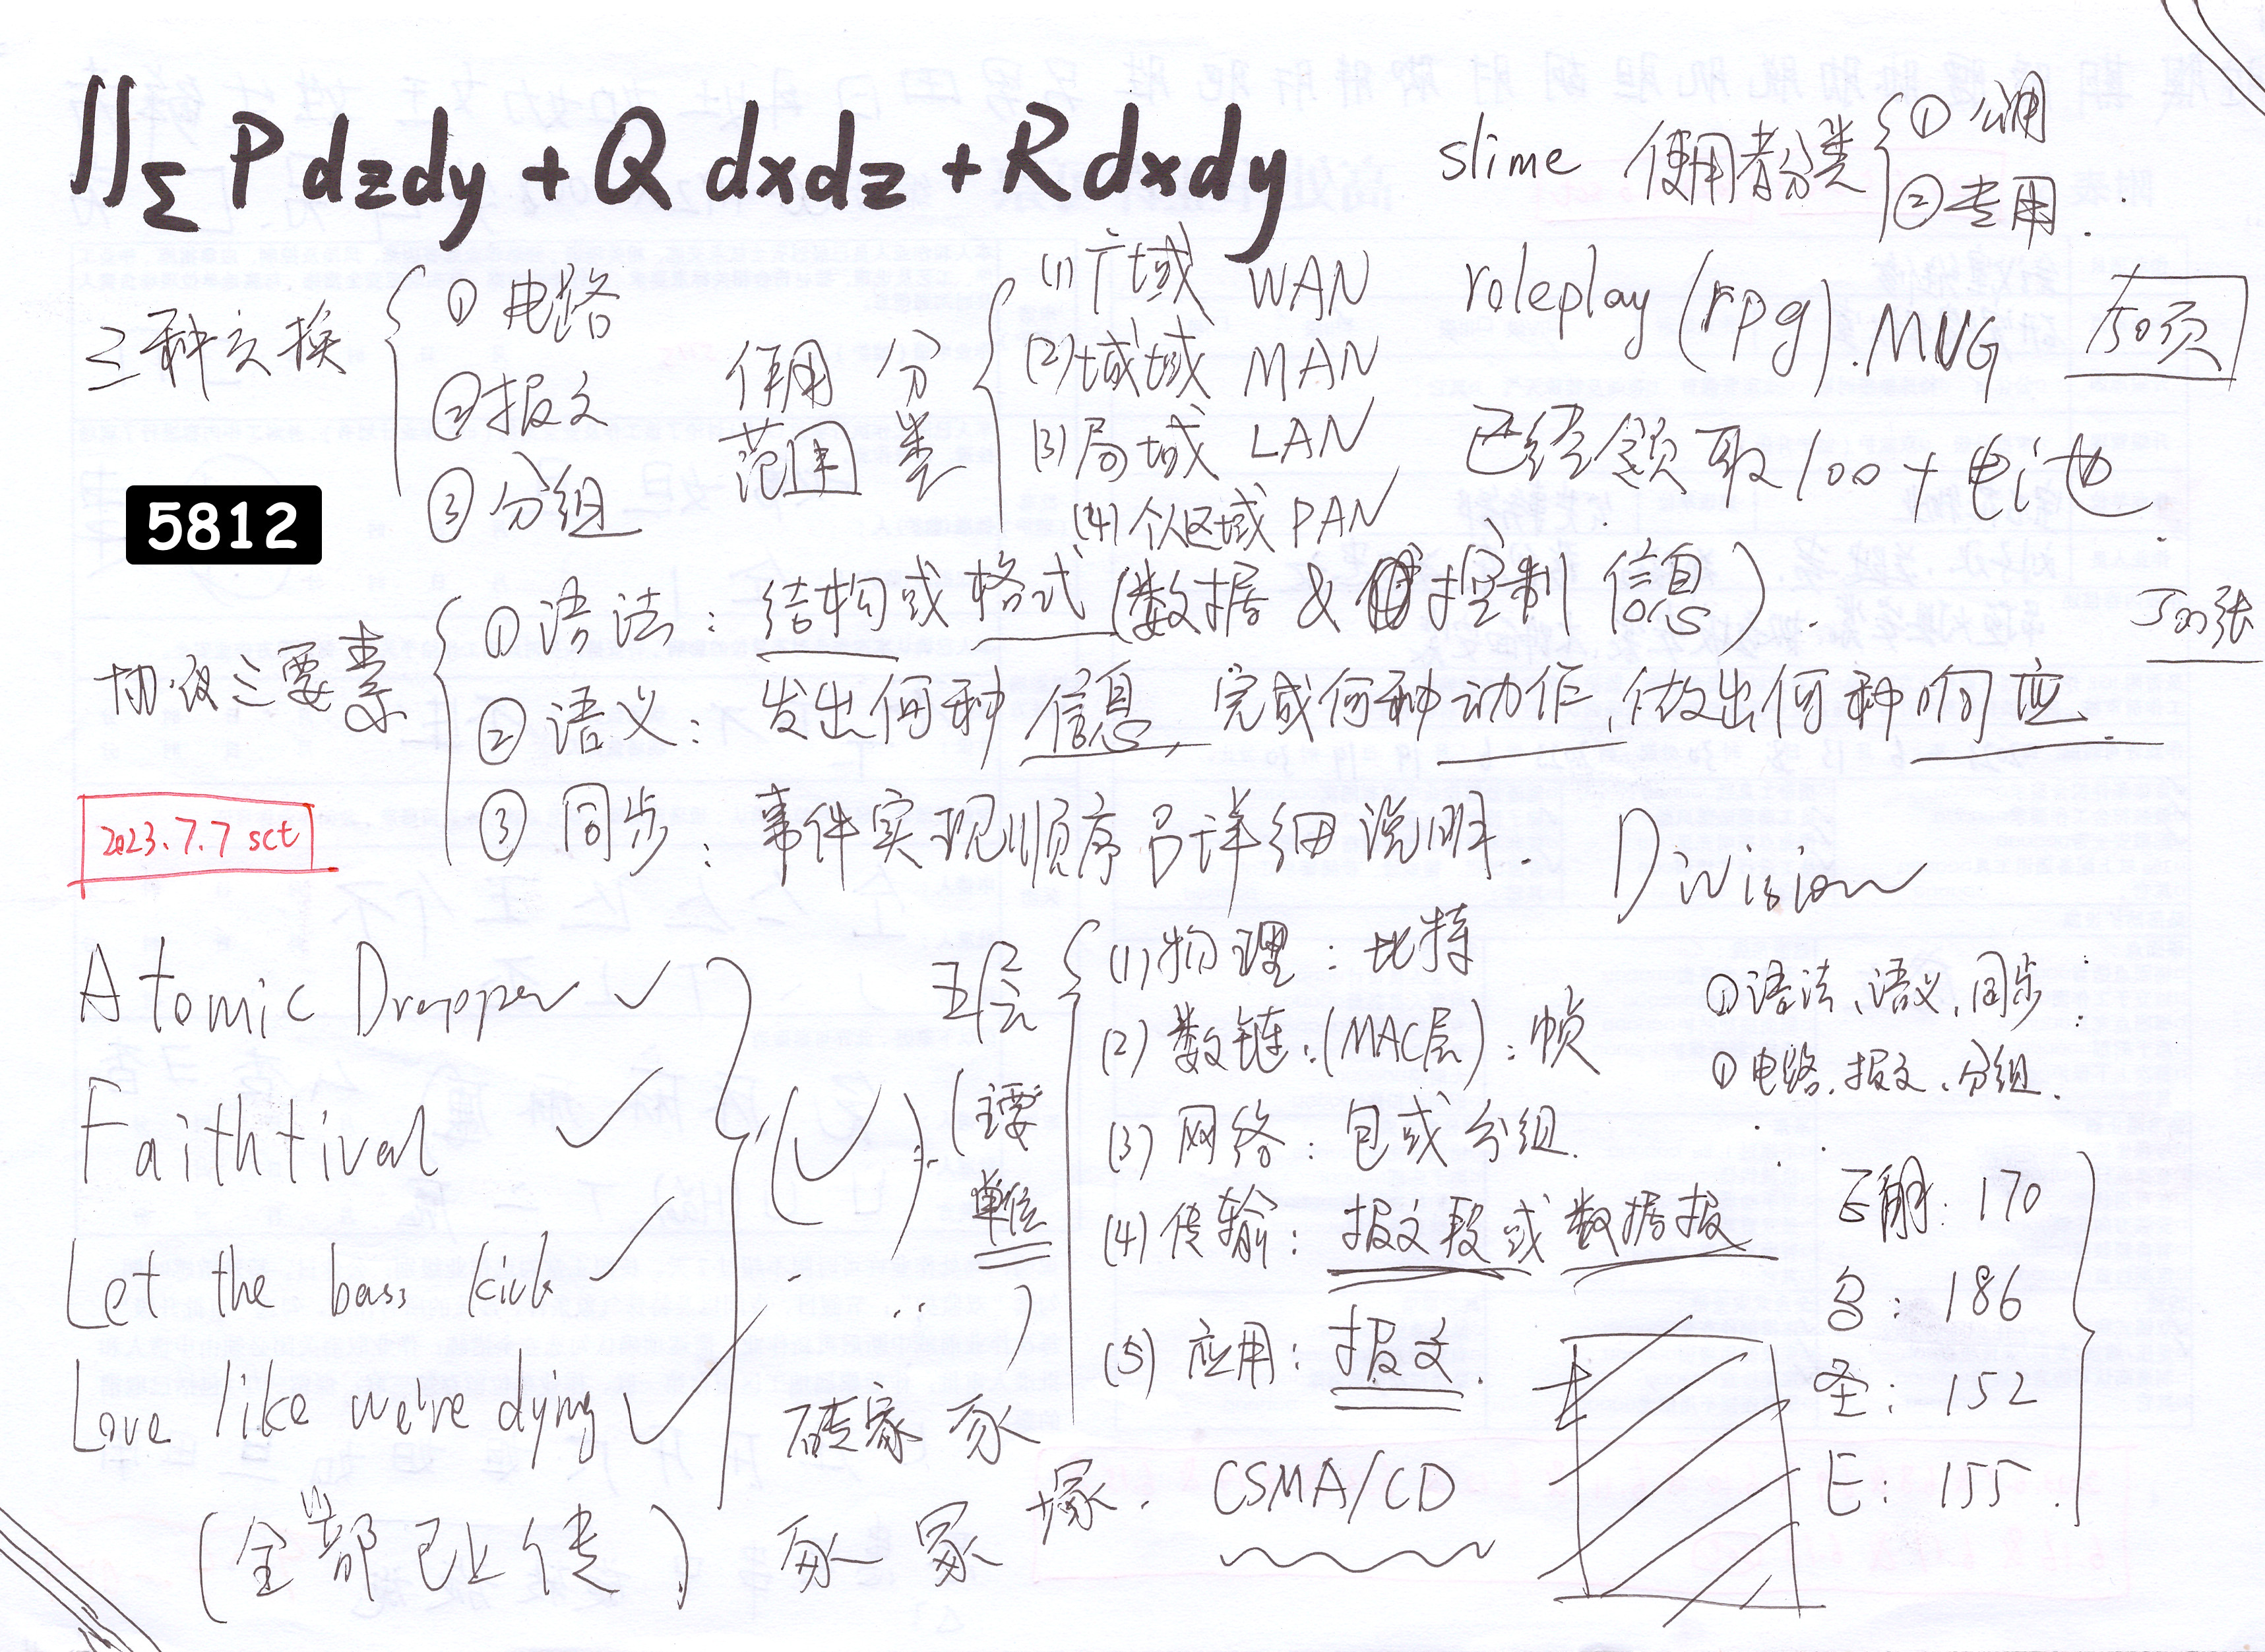 ∬Σ Pdzdy + Q dxdz + Rdxdy
slime 使用者分类 ①公用
②专用.
三种交换 ①电路
②报文
③分组
使用范围 分类
(1)广域 WAN
(2)域域 MAN
(3)局域 LAN
(4)个人区域 PAN
roleplay (rpg). MUG
50页
已经领取100+电池.
5812
协议三要素
①语法: 结构或格式 (数据 & 控制 信息).
②语义: 发出何种信息, 完成何种动作, 做出何种响应.
③同步: 事件实现顺序的详细说明.
2023.7.7 sct
Division
Atomic Dropper ✓
Faithtival ✓
Let the bass kick ✓
Love like we're dying ✓
(全部已上传)
五层
(主要
单位
)
(1)物理: 比特
(2)数链.(MAC层): 帧
(3)网络: 包或分组.
(4)传输: 报文段或数据报
(5)应用: 报文.
①语法、语义、同步:
①电路、报文、分组.
: 170
: 186
圣: 152
E: 155.
砖家 豖
冢 塚.
CSMA/CD